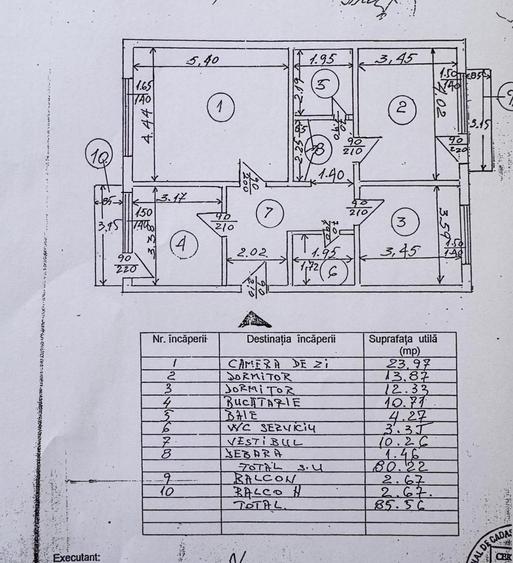 5,40
1.95
3,45
1.65
140
4.44
1
2.19
5
2
4.02
1.50
140
.85
3.15
90
220
2.25
.65
8
70
90
210
1.40
10
.85
3.17
90
200
1.50
140
3.15
3.38
4
90
210
7
90
210
3
3.59
2.02
70
1.95
1.72
6
3,45
1.50
140
90
220
90
210
Nr. încăperii Destinația încăperii Suprafața utilă (mp)
1 CAMERA DE ZI 23.97
2 DORMITOR 13.87
3 DORMITOR 12.33
4 BUCĂTARIE 10.71
5 BAIE 4.27
6 WC SERVICIU 3.35
7 VESTIBUL 10.26
8 DEBARA 1.46
TOTAL S.U 80.22
9 BALCON 2.67
10 BALCON 2.67.
TOTAL. 85.56
Executant: